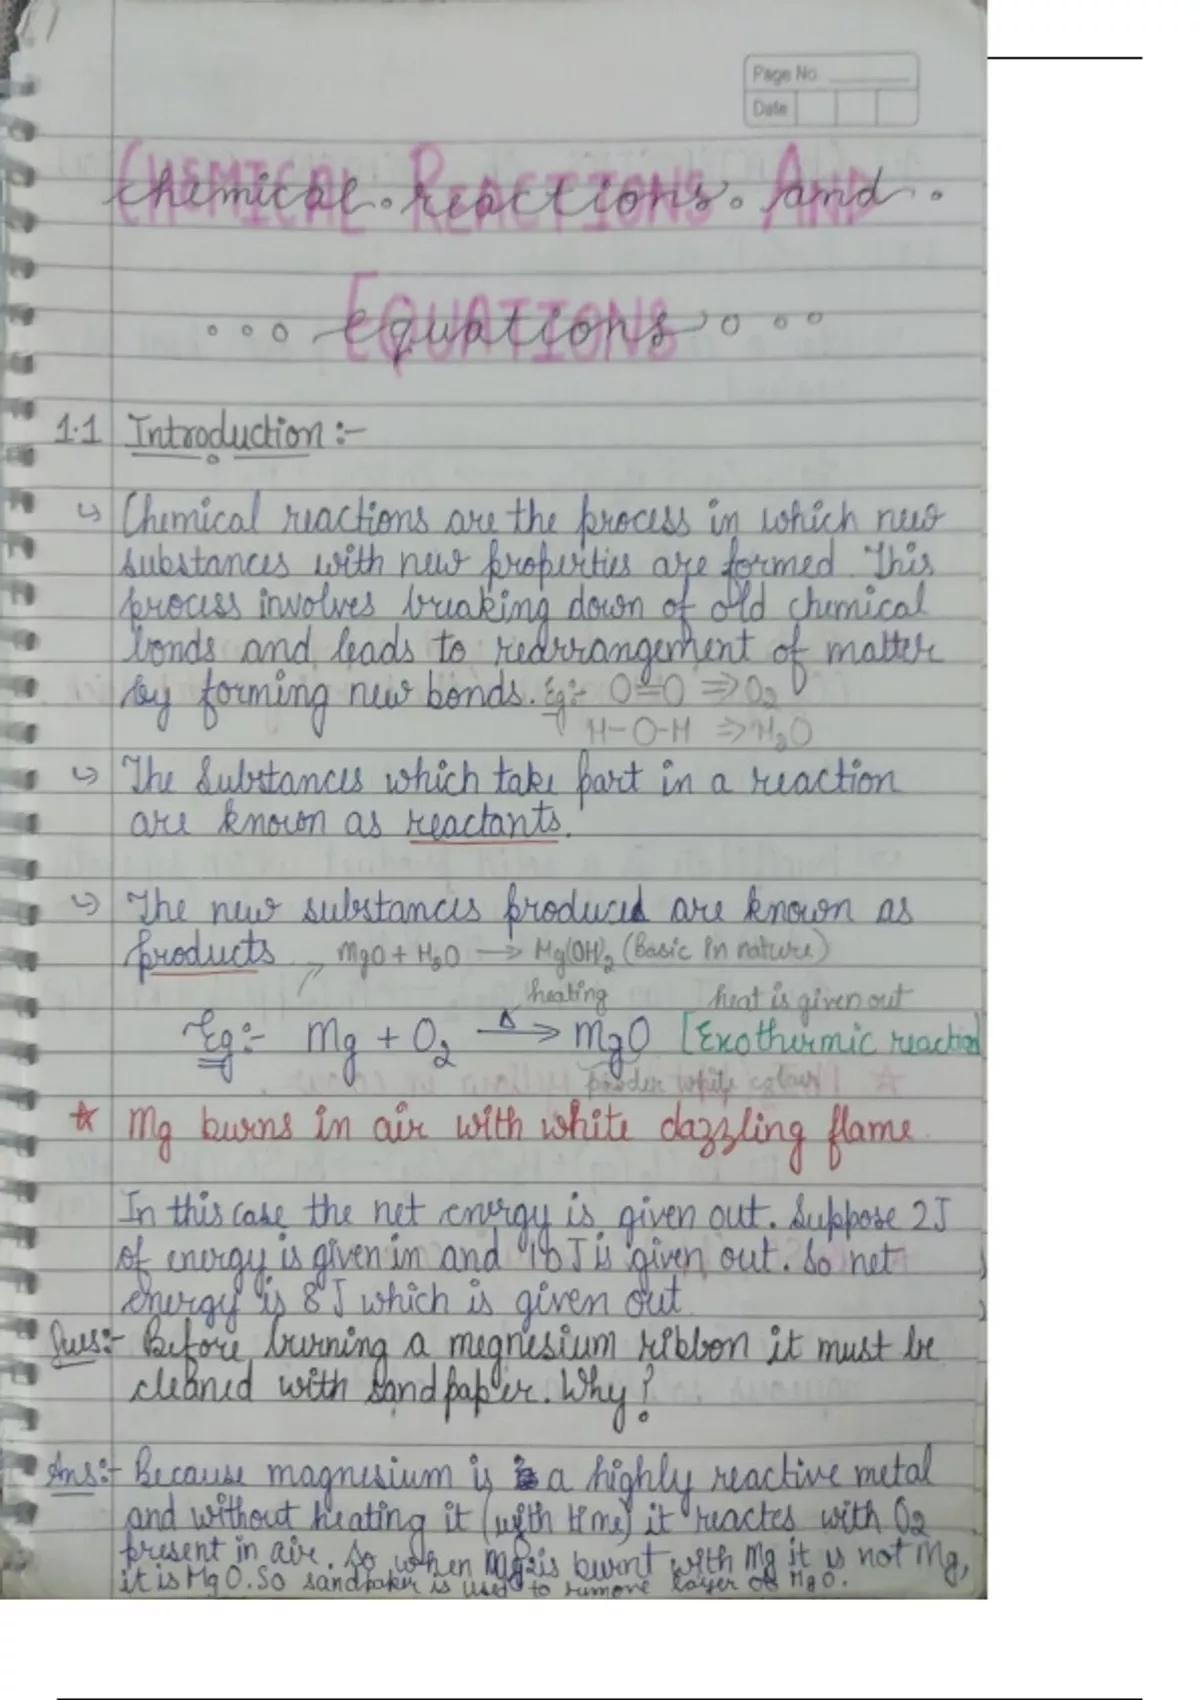 Page No
Date
Chemical Reactions And
Equations
1.1 Introduction :-
↳ Chemical reactions are the process in which new
substances with new properties are formed. This
process involves breaking down of old chemical
bonds and leads to rearrangement of matter
by forming new bonds. Eg:- O=O ⇒ O2
H-O-H ⇒ H2O
↳ The substances which take part in a reaction
are known as reactants.
↳ The new substances produced are known as
products → MgO + H2O → Mg(OH)2 (Basic in nature)
heating heat is given out
Eg:- Mg + O2 —Δ→ MgO [Exothermic reaction]
powder white colour
☆ Mg burns in air with white dazzling flame.
In this case the net energy is given out. Suppose 2J
of energy is given in and 10J is given out. So net
energy is 8J which is given out
Ques:- Before burning a megnesium ribbon it must be
cleaned with sandpaper. Why?
Ans:- Because magnesium is a highly reactive metal
and without heating it (with time) it reactes with O2
present in air. So when is burnt with Mg it is not Mg,
it is MgO. So sandpaker is used to remove layer of MgO.